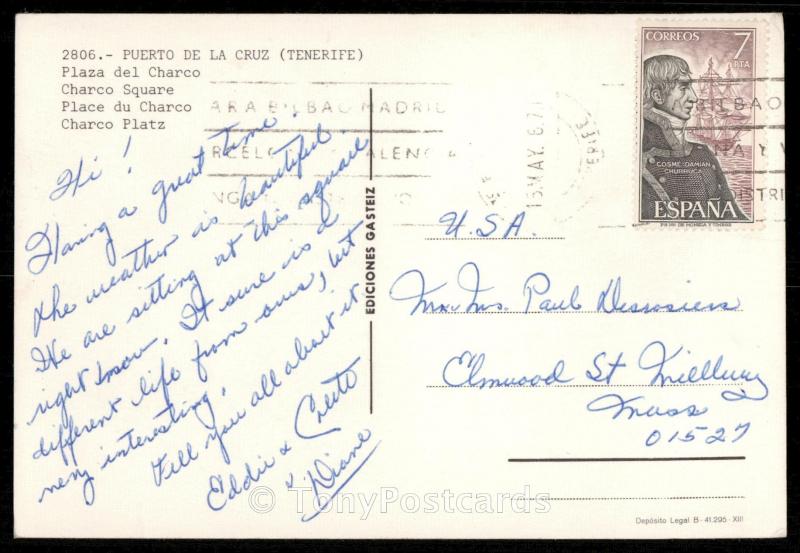 2806.- PUERTO DE LA CRUZ (TENERIFE)
Plaza del Charco
Charco Square
Place du Charco
Charco Platz
Hi!
Having a great time.
the weather is beautiful.
We are sitting at this square
right now. It sure is a
different life from ours, but
very interesting.
Tell you all about it
Eddie &
& Diane
EDICIONES GASTEIZ
ARA BILBAO MADRID
RCELO ALENC
MAY. 6.7
BILBAO
A Y V
DISTRI
CORREOS 7
PTA
COSME DAMIAN
CHURRUCA
ESPAÑA
U.S.A.
Mr. Mrs. Paul Desrosiers
Elmwood St Millbury
Mass
01527
Depósito Legal B - 41.295 - XIII
© TonyPostcards